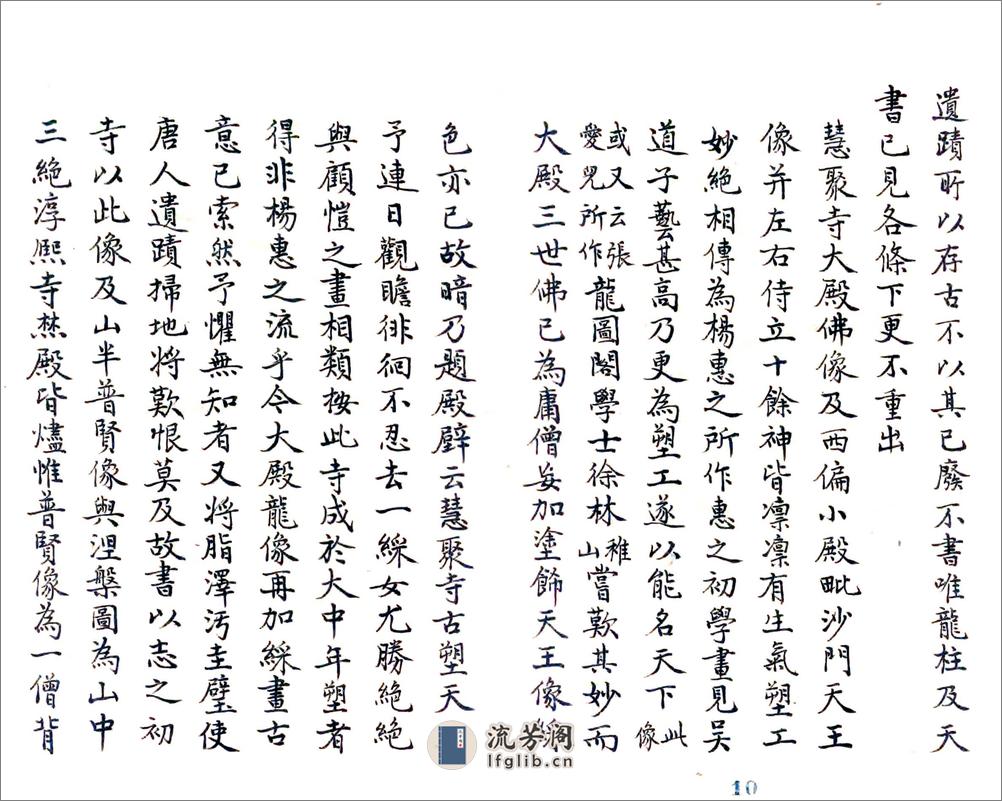 遺蹟所以存古不以其已廢不書唯龍柱及天
書已見各條下更不重出
慧聚寺大殿佛像及西偏小殿毗沙門天王
像并左右侍立十餘神皆凛凛有生氣塑工
妙絕相傳為楊惠之所作惠之初學畫見吳
道子藝甚高乃更為塑工遂以能名天下此像
或又云張愛兒所作龍圖閣學士徐林稚山嘗歎其妙而
大殿三世佛已為庸僧妄加塗飾天王像綵
色亦已故暗乃題殿壁云慧聚寺古塑天
予連日觀瞻徘徊不忍去一綵女尤勝絕絕
與顧愷之畫相類按此寺成於大中年塑者
得非楊惠之流乎今大殿龍像再加綵畫古
意已索然予懼無知者又將脂澤污圭璧使
唐人遺蹟掃地將歎恨莫及故書以志之初
寺以此像及山半普賢像與涅槃圖為山中
三絕淳熙寺焚殿皆燼惟普賢像為一僧背
流芳閣
lfglib.cn
10